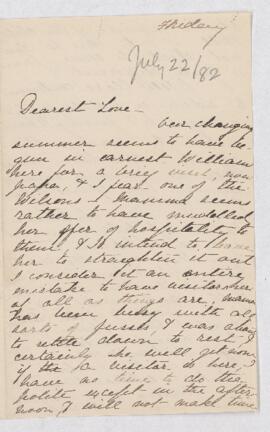 Friday
July 22/82
Dearest Love -
Our changing
summer seems to have be
gun in earnest William
here for a brief visit, now
papa, & I fear one of the
Wilsons & Mamma seems
rather to have muddled
her offer of hospitality to
them, & I intend to leave
her to straighten it out
I consider it an entire
mistake to have visitors here
at all as things are, Mamma
has been busy with all
sorts of fusses, & was about
to settle down to rest &
certainly she will get none
if a visitor is here, I
have no time to do the
polite except in the after-
noon, I will not make time